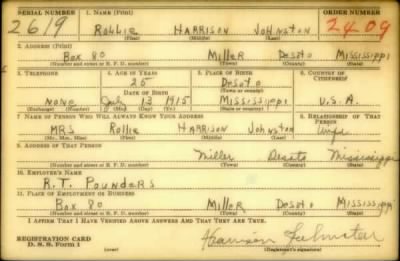 SERIAL NUMBER 1. NAME (Print) ORDER NUMBER
2619 Rollie HARRISON Johnston 2409
(First) (Middle) (Last)
2. ADDRESS (Print)
Box 80 Miller Desoto Mississippi
(Number and street or R. F. D. number) (Town) (County) (State)
3. TELEPHONE 4. AGE IN YEARS 5. PLACE OF BIRTH 6. COUNTRY OF CITIZENSHIP
25 Desoto
DATE OF BIRTH (Town or county)
NONE July 13 1915 Mississippi U.S.A.
(Exchange) (Number) (Mo.) (Day) (Yr.) (State or country)
7. NAME OF PERSON WHO WILL ALWAYS KNOW YOUR ADDRESS 8. RELATIONSHIP OF THAT PERSON
MRS Rollie HARRISON Johnston Wife
(Mr., Mrs., Miss) (First) (Middle) (Last)
9. ADDRESS OF THAT PERSON
Miller Desoto Mississippi
(Number and street or R. F. D. number) (Town) (County) (State)
10. EMPLOYER'S NAME
R.T. Pounders
11. PLACE OF EMPLOYMENT OR BUSINESS
Box 80 Miller Desoto Mississippi
(Number and street or R. F. D. number) (Town) (County) (State)
I AFFIRM THAT I HAVE VERIFIED ABOVE ANSWERS AND THAT THEY ARE TRUE.
REGISTRATION CARD
D. S. S. Form 1 Harrison Johnston
(Registrant's signature)